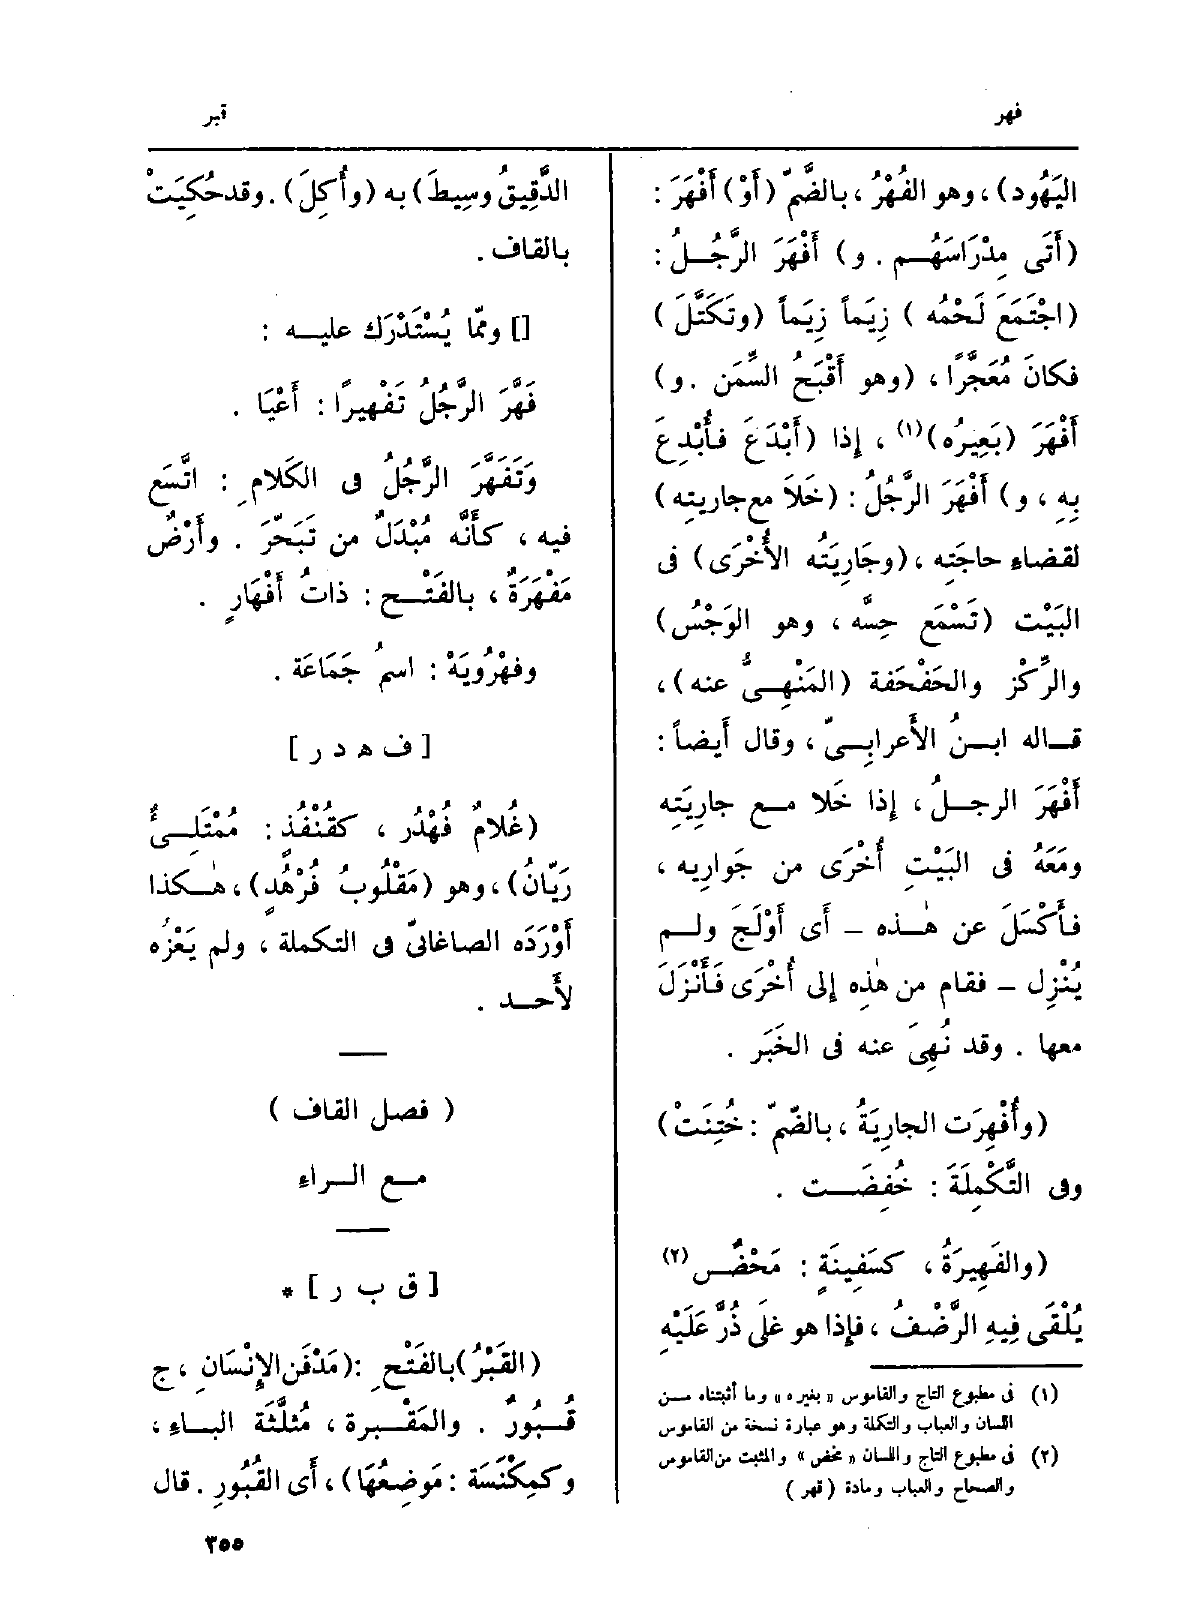 فهر
قبر
اليَهُود) ، وهو الفُهْرُ ، بالضَّمّ (أَوْ) أَفْهَرَ :
(أَتَى مِدْرَاسَهُـم . و) أَفْهَرَ الرَّجُـلُ :
(اجْتَمَعَ لَحْمُه ) زِيَماً زِيَماً (وتَكَتَّلَ )
فكانَ مُعَجَّرًا ، (وهو أَقْبَحُ السِّمَن . و)
أَفْهَرَ (بَعِيرُه)(١) ، إذا (أَبْدَعَ فأُبْدِعَ
بِهِ ، و) أَفْهَرَ الرَّجُلُ : (خَلَا مع جاريته)
لقضاءِ حاجَتِه ، (وجَارِيَتُه الأُخْرَى) فى
البَيْت (تَسْمَع حِسَّه ، وهو الوَجْسُ)
والرِّكْز والحَفْحَفة (المَنْهِـىُّ عنه) ،
قـاله ابـنُ الأَعرابـىّ ، وقال أَيضاً :
أَفْهَرَ الرجـلُ ، إِذا خَلا مـع جارِيَتِه
ومَعَهُ فى البَيْتِ أُخْرَى من جَوارِيه ،
فـأَكْسَلَ عن هٰـذه – أَى أَوْلَجَ ولـم
يُنْزِل – فقام من هٰذِه إِلى أُخْرَى فَأَنْزَلَ
معها . وقد نُهِىَ عنه فى الخَبَر .
(وأُفْهِرَت الجارِيَةُ ، بالضّمّ : خُتِنَتْ)
وفى التَّكْمِلَةَ : خُفِضَـت .
(والفَهِيرَةُ ، كسَفِينَةٍ : مَحْضٌ(٢)
يُلْقَى فِيهِ الرَّضْفُ ، فإِذا هو غَلَى ذُرَّ عَلَيْهِ
(١) فى مطبوع التاج والقاموس « بغيره » وما أثبتناه مـن
اللسان والعباب والتكملة وهو عبارة نسخة من القاموس
(٢) فى مطبوع التاج واللسان « مخض » والمثبت من القاموس
والصحاح والعباب ومادة ( قهر )
الدَّقِيقُ وسِيطَ) به (وأُكِلَ) . وقد حُكِيَتْ
بالقاف .
[] وممّا يُسْتَدْرَك عليـه :
فَهَّرَ الرَّجُلُ تَفْهِيرًا : أَعْيَا .
وَتَفَهَّرَ الرَّجُلُ فى الكَلامِ : اتَّسَع
فيه ، كـأَنَّه مُبْدَلٌ من تَبَحَّرَ . وأَرْضٌ
مَفْهَرَةٌ ، بالفَتْـح : ذاتُ أَفْهَارٍ .
وفِهْرُويَهْ : اسمُ جَمَاعَة .
[ ف هـ د ر ]
(غُلامٌ فُهْدُر ، كقُنْفُذٍ : مُمْتَلِـىُٔ
رَيّانُ) ، وهو (مَقْلُوبُ فُرْهُدٍ) ، هٰـكذا
أَوْرَدَه الصاغانىّ فى التكملة ، ولم يَعْزُه
لأَحـد .
( فصل القاف )
مـع الـراء
[ ق ب ر ] *
(القَبْرُ) بالفَتْحِ : (مَدْفَن الإِنْسَانِ ، ج
قُـبُورٌ . والمَقْـبرة ، مُثلَّثَة البـاءِ ،
وكمِكْنَسَة : مَوضِعُهَا) ، أَى القُبُورِ . قال
٣٥٥